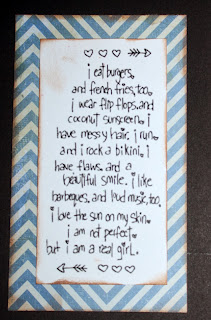 i eat burgers,
and french fries, too.
i wear flip flops and
coconut sunscreen. i
have messy hair. i run.
and i rock a bikini. i
have flaws. and a
beautiful smile. i like
barbeques. and loud music, too.
i love the sun on my skin.
i am not perfect.
but i am a real girl.